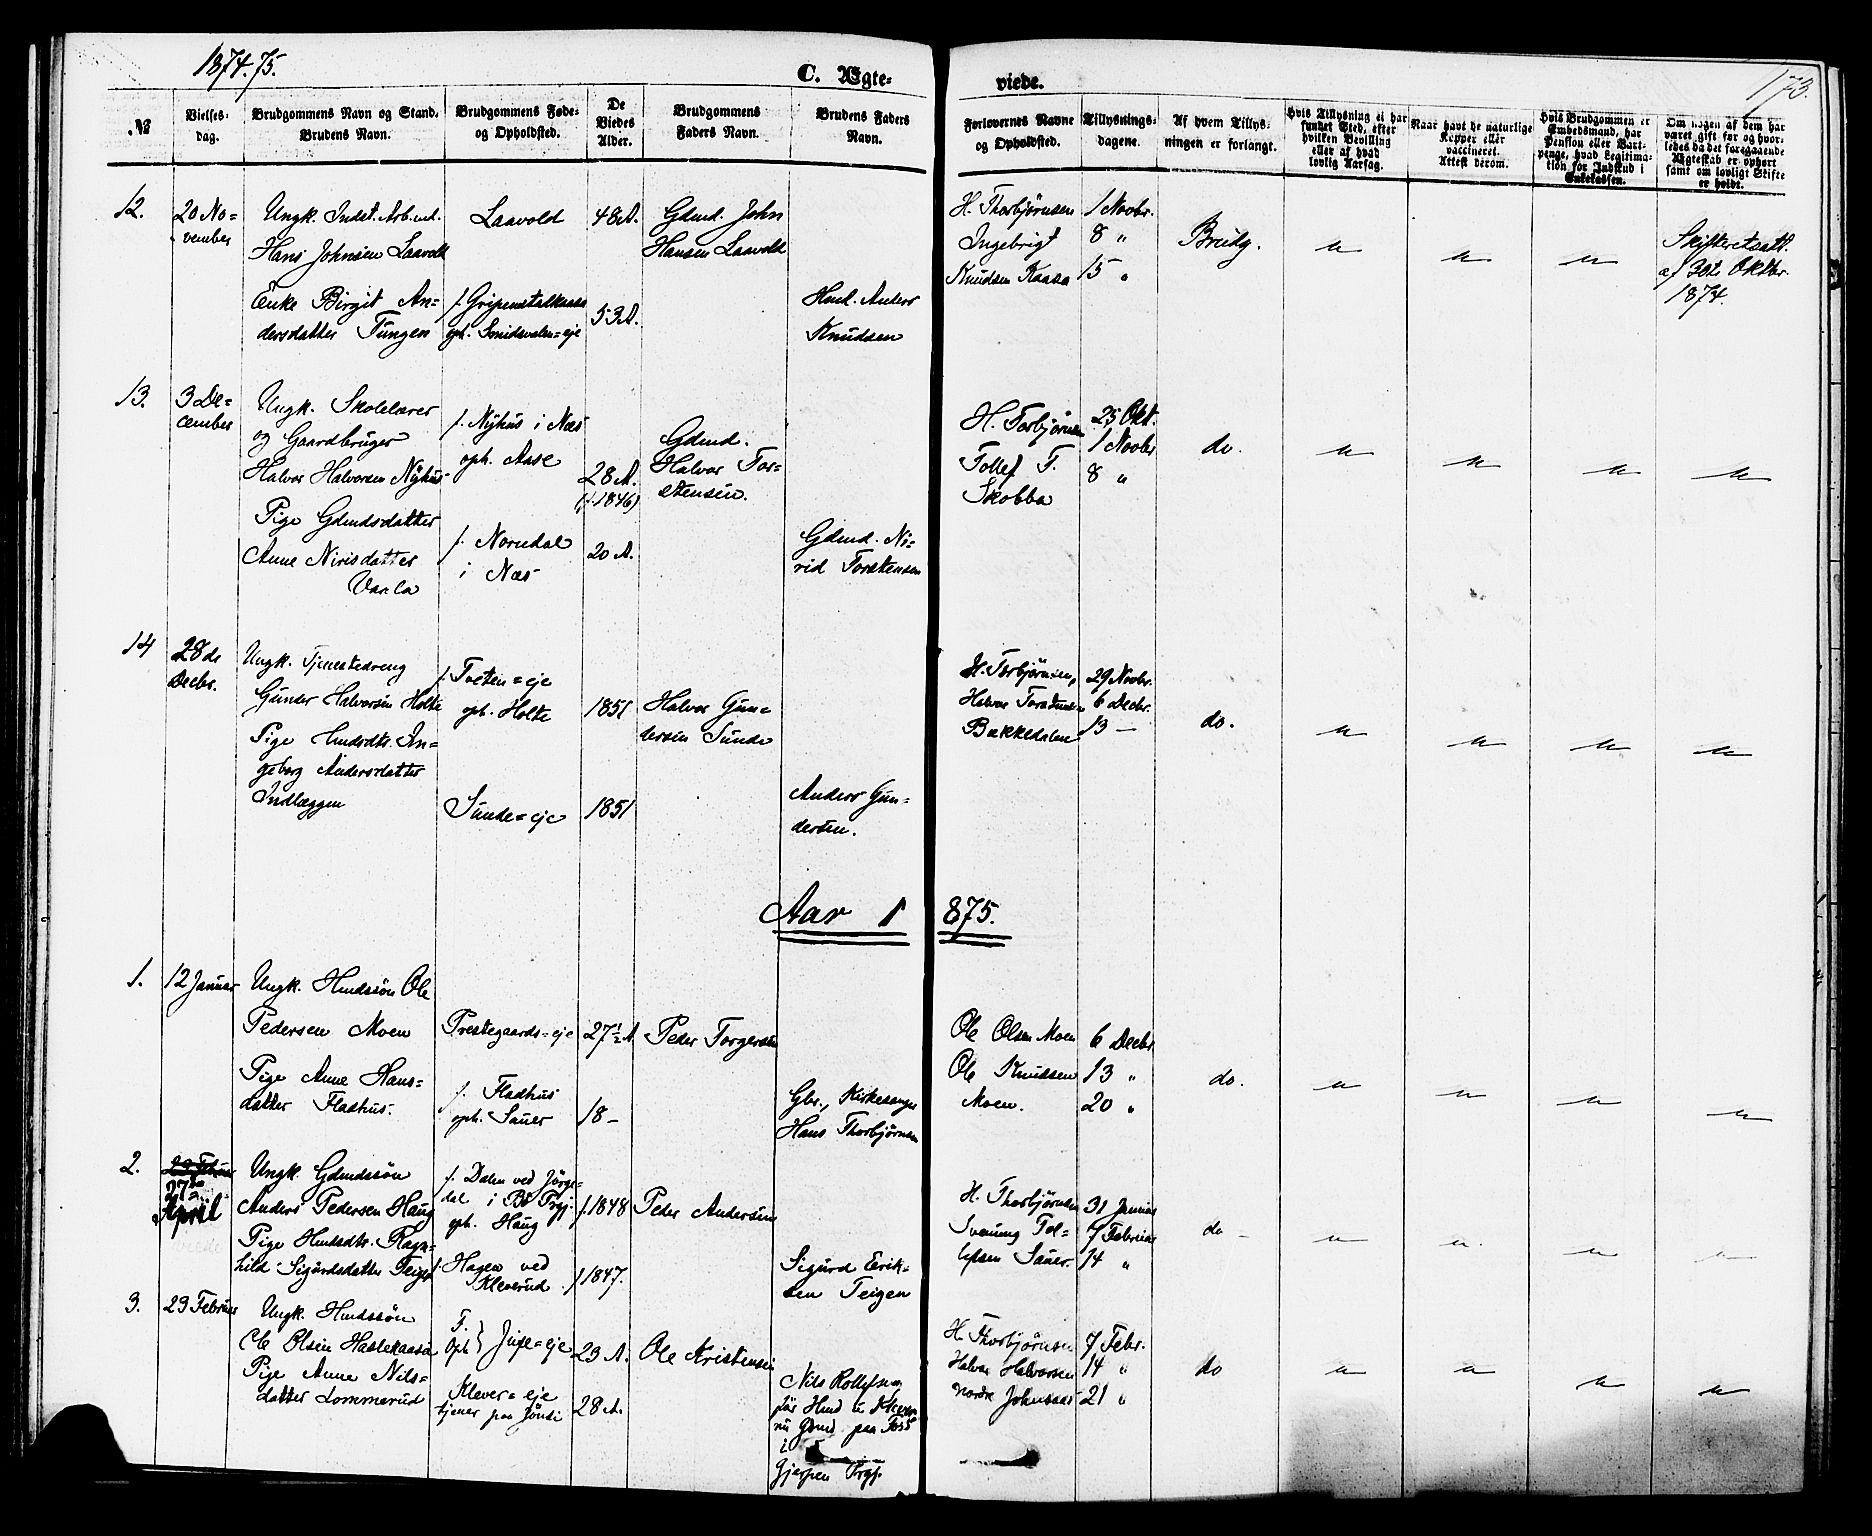 1874.75.
C. Ægte-
viede.
173.
№
Vielses-
dag.
Brudgommens Navn og Stand.
Brudens Navn.
Brudgommens Føde-
og Opholdsted.
De
Viedes
Alder.
Brudgommens
Faders Navn.
Brudens Faders
Navn.
Forlovernes Navne
og Opholdsted.
Tillysnings-
dagene.
Af hvem Tillys-
ningen er forlangt.
Hvis Tillysning ei har
fundet Sted, efter
hvilken Bevilling
eller af hvad
lovlig Aarsag.
Naar havt de naturlige
Kopper eller
vaccineret.
Attest derom.
Hvis Brudgommen er
Embedsmand, har
Pension eller Vart-
penge, hvad Legitima-
tion for Indskud i
Enkekassen.
Om nogen af dem har
været gift før og hvor-
ledes da det foregaaende
Ægteskab er ophørt
samt om lovligt Skifte
er holdt.
12.
20 No-
vember
Ungk. Indst. Arb.md.
Hans Johnsen Laavold
Enke Birgit An-
dersdatter Tungen
Laavold
f. Gripenstalkaasa
oph. Smidsvalen=eje
48 A.
53 A.
Gdmd. John
Hansen Laavold
Hmd. Anders
Knudsen
H. Thorbjørnsen
Ingebrigt
Knudsen Kaasa
1 Novbr.
8 "
15 "
Brudg.
"
"
"
Skifteretsatt.
af 30te Oktbr.
1874.
13.
3 De-
cember
Ungk. Skolelærer
og Gaardbruger
Halvor Halvorsen Nyhus
Pige Gdmdsdatter
Anne Nirisdatter
Varla
f. Nyhus i Næs
oph. Aase
f. Nordal
i Næs
28 A.
(f. 1846)
20 A.
Gdmd.
Halvor Tor-
stensen.
Gdmd. Ni-
rid Torstensen
H. Torbjørnsen
Tollef T.
Skobba
25 Okt.
1 Novbr
8 "
do.
"
"
"
"
14
28de
Decbr.
Ungk. Tjenestedreng
Gunder Halvorsen Holte
Pige Hmdsdtr. In-
geborg Andersdatter
Indlæggen
f. Tveten=eje
oph. Holte
Sunde=eje
1851
1851
Halvor Gun-
dersen Sunde
Anders Gun-
dersen.
H. Torbjørnsen,
Halvor
Bakkedalen
29 Novbr.
6 Decbr.
13 —
do.
"
"
"
"
Aar 1875.
1.
12 Januar
Ungk. Hmdssøn Ole
Pedersen Moen
Pige Anne Hans-
datter Fladhus.
Prestegaards=eje
f. Fladhus
oph. Sauer
27½ A
18 –
Peder Torgersen
Gbr., Kirkesanger
Hans Thorbjørnsen
Ole Olsen Moen
Ole Knudsen
Moen.
6 Decbr.
13 "
20 "
do.
"
"
"
"
2.
23 Februar
27de
April
Ungk. Gdmdssøn
Anders Pedersen Haug
Pige Hmdsdtr. Ragn-
hild Sigurdsdatter Teigen
f. Dalen ved Jørge-
dal i Bø Prgj.
oph. Haug
f. Hagen ved
Kleverud
f. 1848
f. 1847.
Peder Andersen
Sigurd Erik-
sen Teigen
H. Thorbjørnsen
Svenung Tol-
lefsen Sauer.
31 Januar
7 Februar
14 "
do
"
"
"
"
3.
23 Februar
Ungk. Hmdssøn
Ole Olsen Haslekaasa
Pige Anne Nils-
datter Lommerud
F.
Oph } Juve=eje
Klever=eje
tjener paa Jønsi
23 A.
28 A.
Ole Kristensen
Nils Rollefsen,
før Hmd u Klever
nu Gbmd. paa Foss
i
Gjerpen Prgj.
H. Thorbjørnsen
Halvor Halvorsen
Nordre Johnsaas
7 Febr.
14 "
21 "
do
"
"
"
"